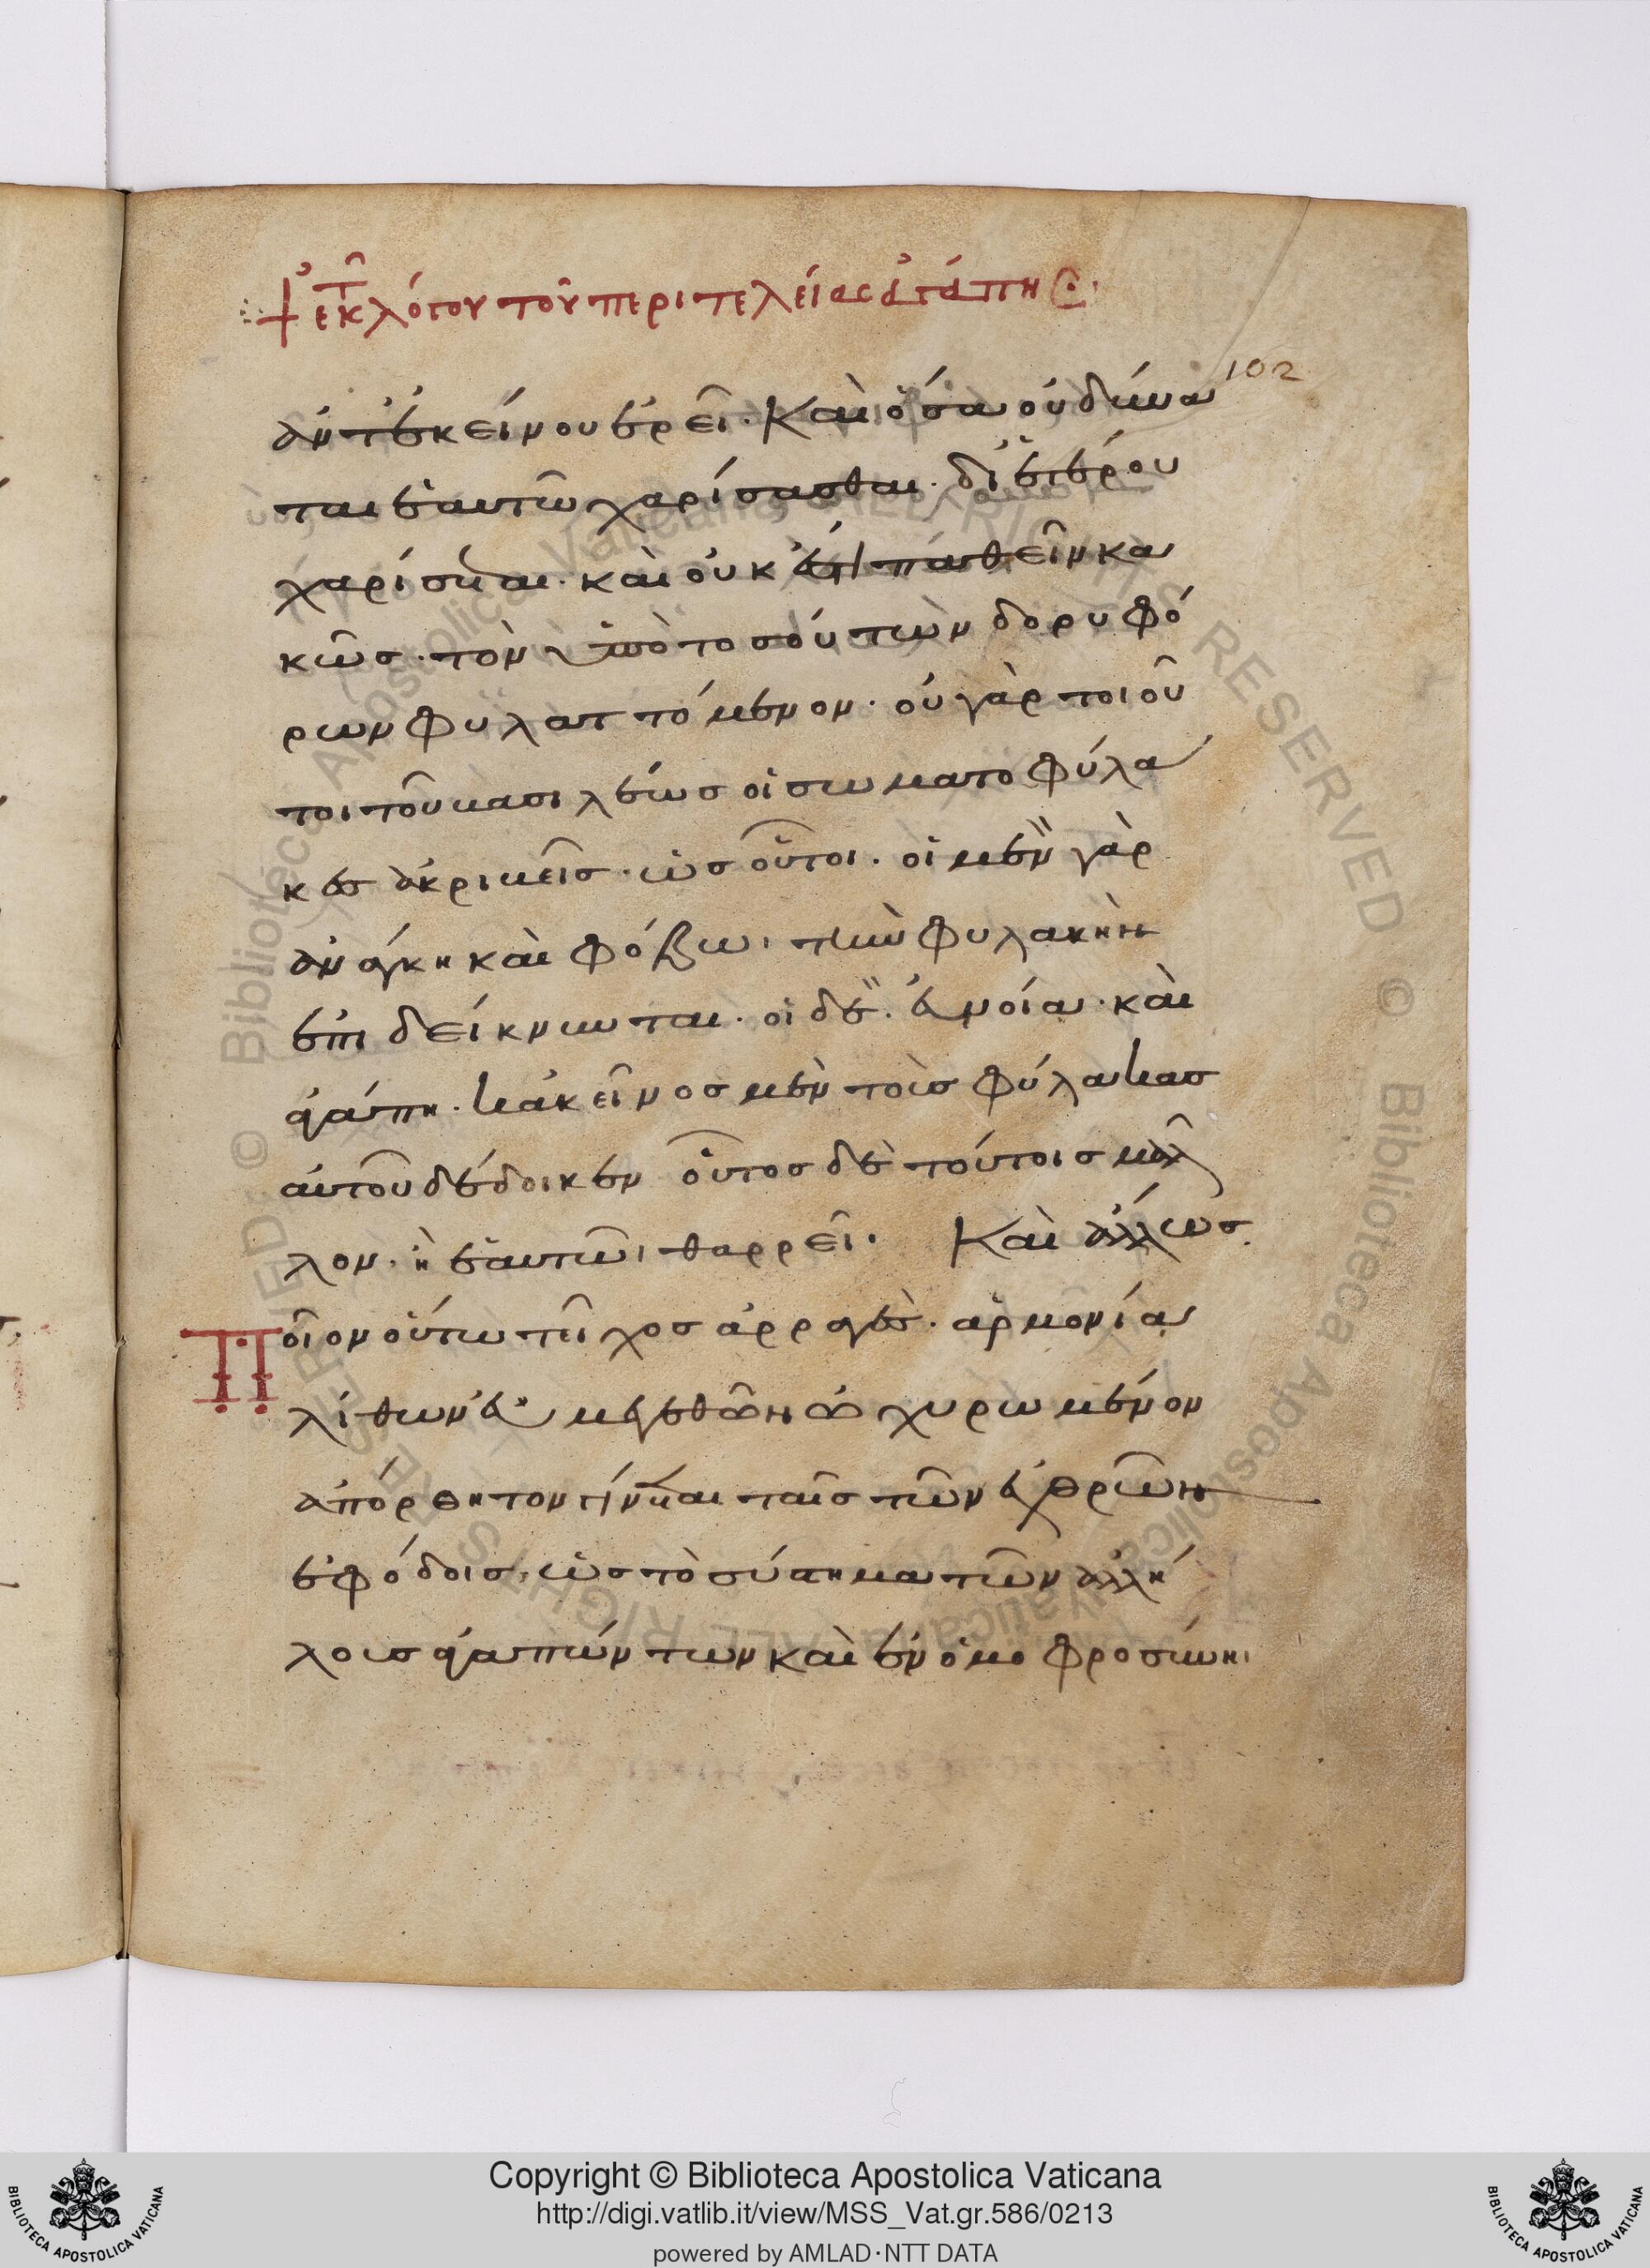 ἐκ τ λόγου τοῦ περι τελείας ἀγάπης.
102
ἀντ' ἐκείνου ἐρεῖ. Καὶ ὅσα οὐ δύνα
ται ἑαυτῶ χαρίσασθαι. δι' ἑτέρου
χαρίσεται. καὶ οὐκ ἔστι παθεῖν κα
κῶς. τὸν ὑπὸ τοσούτων δορυφό
ρων φυλαττόμενον. οὐ γὰρ τοιοῦ
τοι τοῦ βασιλέως οἱ σωματοφύλα
κες ἀκριβεῖς. ὡς οὗτοι. οἱ μὲν γὰρ
ἀνάγκη καὶ φόβωι τὴν φυλακὴν
ἐπιδείκνυνται. οἱ δὲ. εὐνοία. καὶ
ἀγάπη. κἀκεῖνος μὲν τοὺς φύλακας
αὐτοῦ δέδοικεν οὗτος δὲ τούτοις μᾶλ
λον. ἢ ἑαυτῶι θαρρεῖ. Καὶ ἄλλως.
Ποῖον οὕτω τεῖχος ἀρραγὲς. ἁρμονία
λίθων εὐμεγεθῶν ὠχυρωμένον
ἀπόρθητον γίνεται ταῖς τῶν ἐχθρῶν
ἐφόδοις, ὡς τὸ σύστημα τῶν ἀλλή
λους ἀγαπώντων καὶ ἐν ὁμοφροσύνηι
© Biblioteca Apostolica Vaticana ALL RIGHTS RESERVED
Copyright © Biblioteca Apostolica Vaticana
http://digi.vatlib.it/view/MSS_Vat.gr.586/0213
powered by AMLAD·NTT DATA
BIBLIOTECA APOSTOLICA VATICANA
BIBLIOTECA APOSTOLICA VATICANA